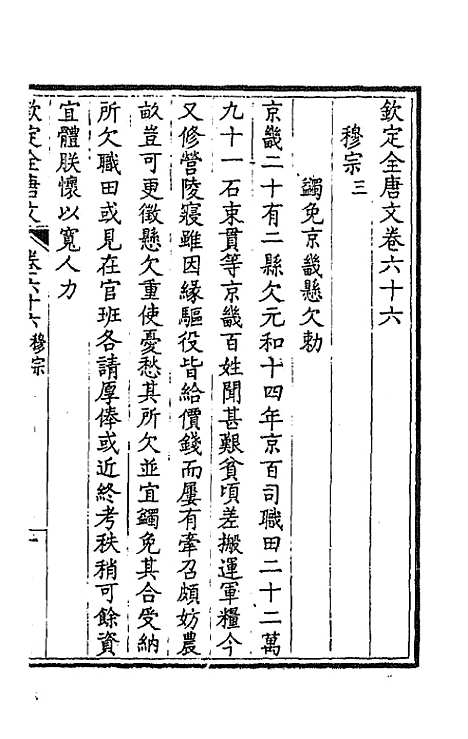 欽定全唐文卷六十六
穆宗三
蠲免京畿懸欠勅
京畿二十有二縣欠元和十四年京百司職田二十二萬
九十一石束貫等京畿百姓聞甚艱貧頃差搬運軍糧今
又修營陵寢雖因緣驅役皆給價錢而屢有牽召頗妨農
畝豈可更徵懸欠重使憂愁其所欠並宜蠲免其合受納
所欠職田或見在官班各請厚俸或近終考秩稍可餘資
宜體朕懷以寬人力
欽定全唐文 卷六十六 穆宗 一